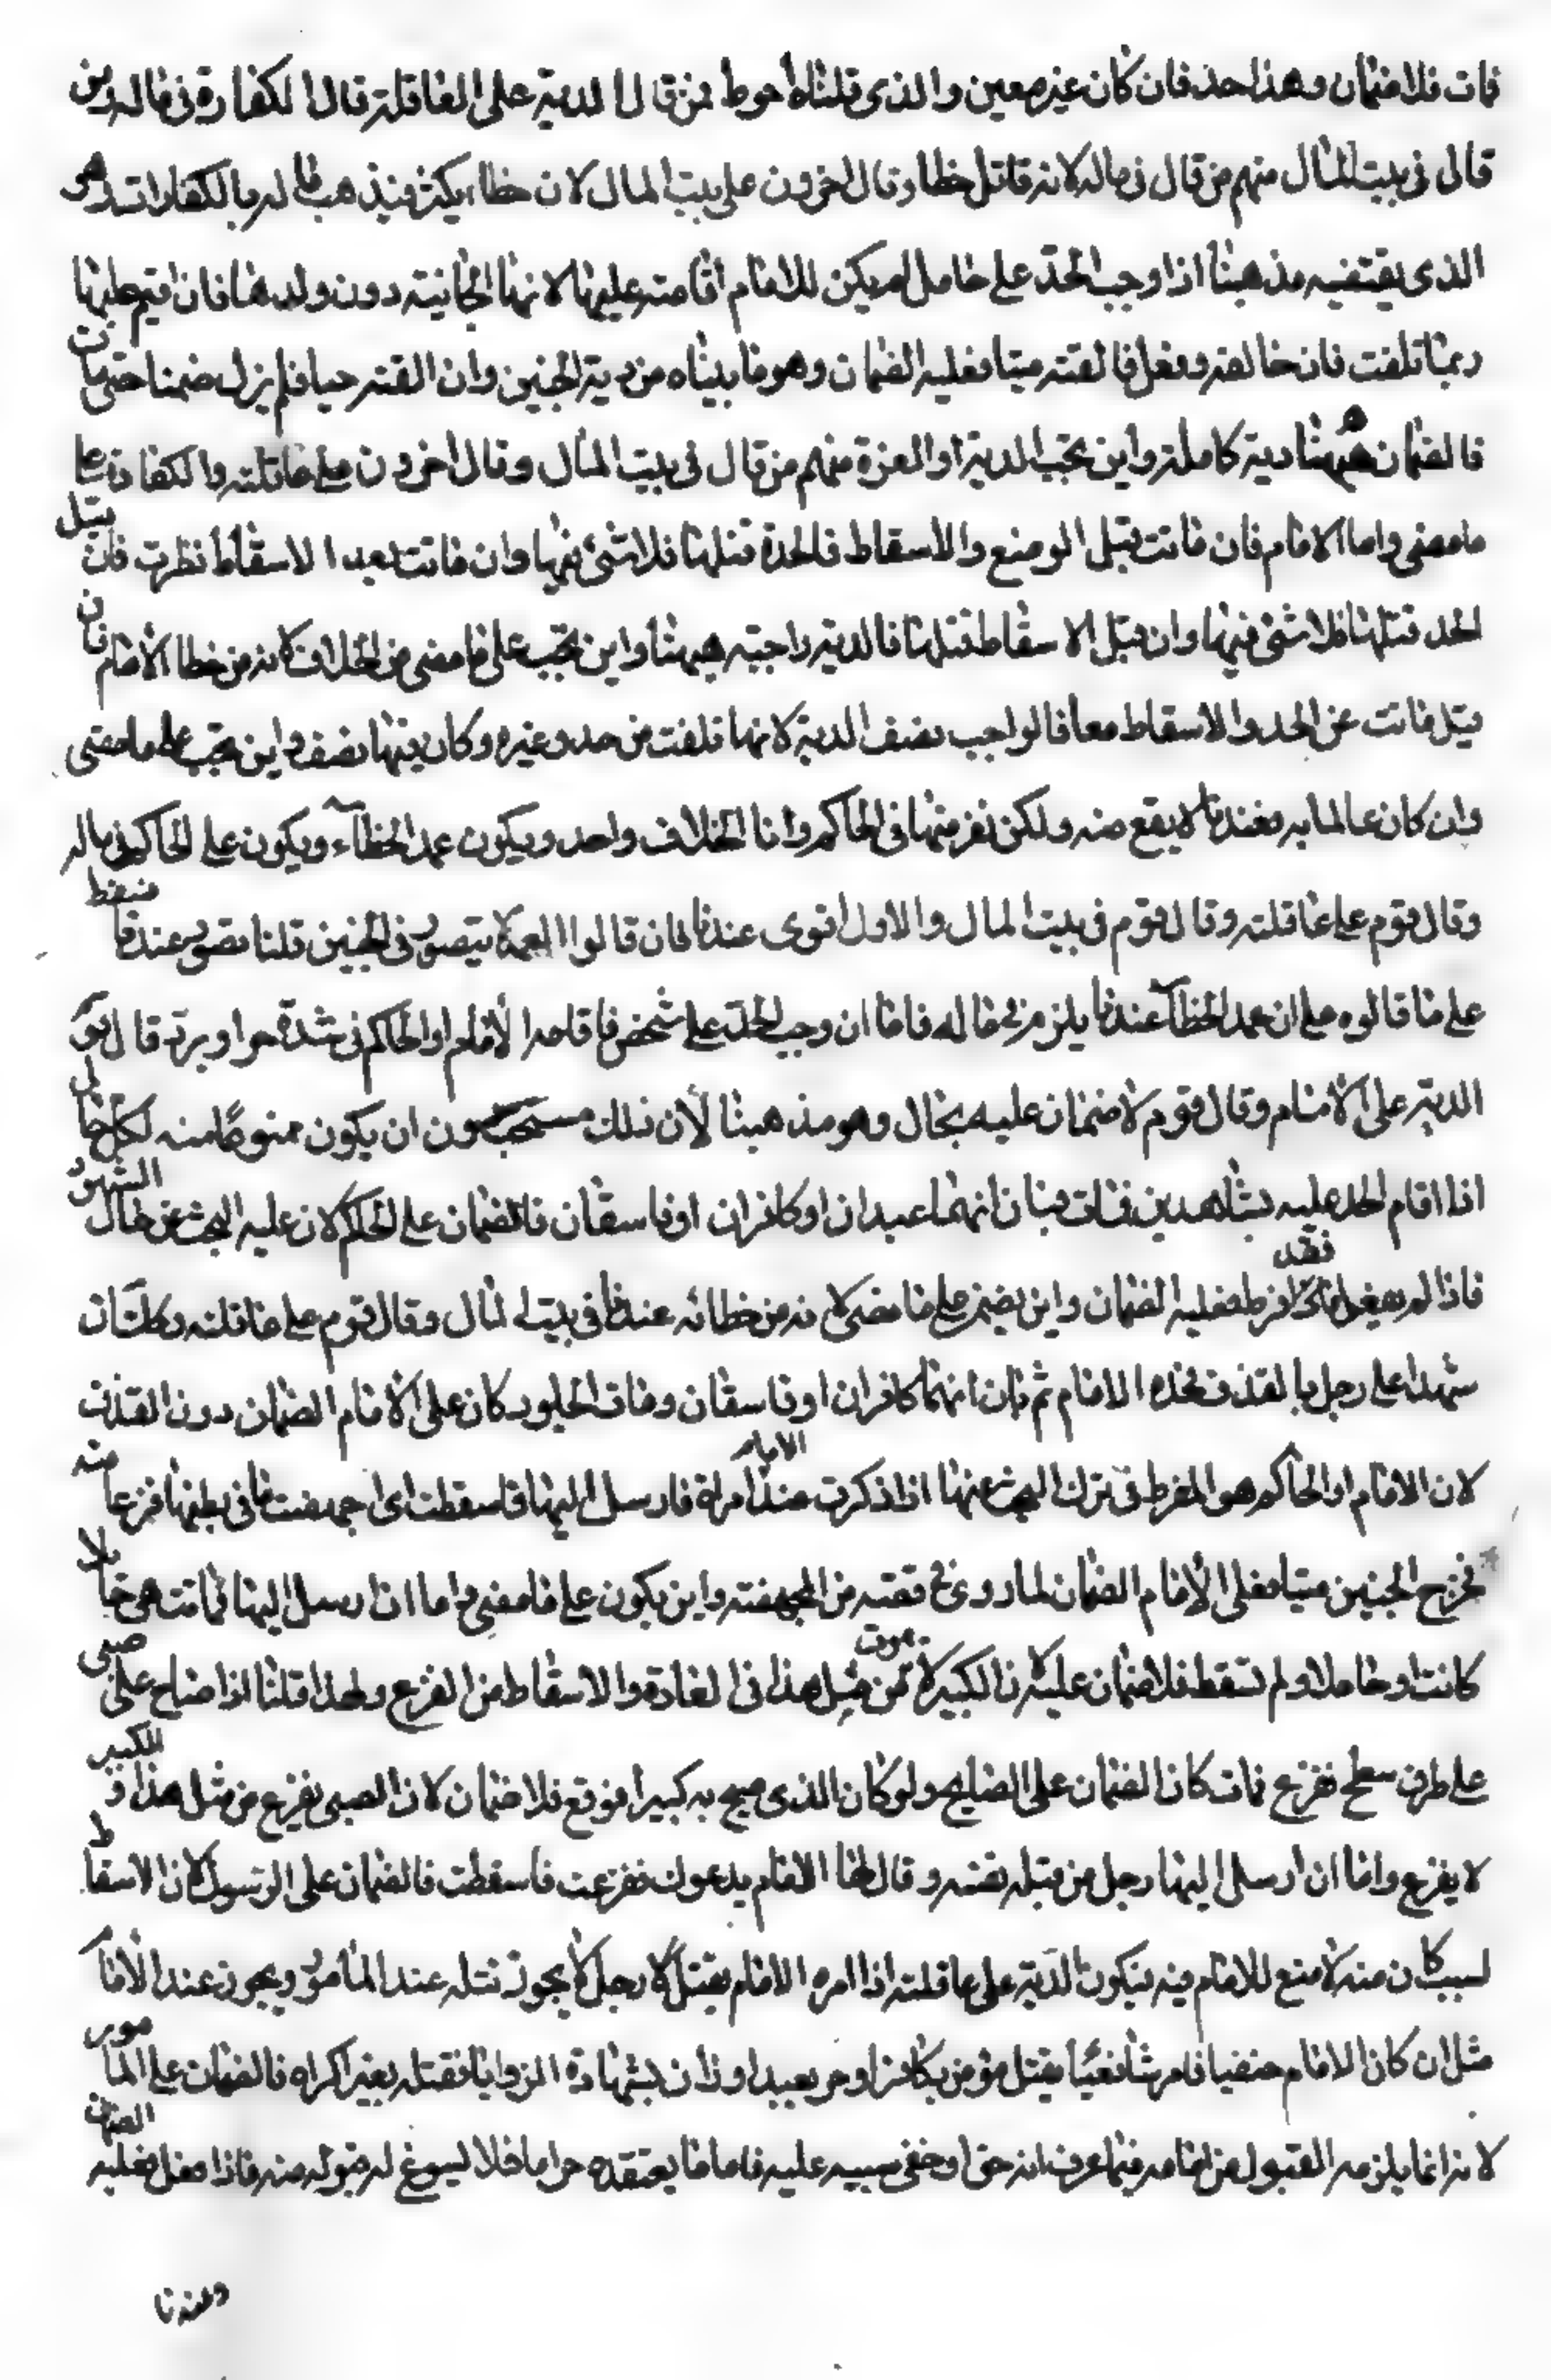 فمات فلا ضمان وهذا حد فان كان غير معين والذي قلناه أحوط فمن قال الدية على العاقلة قال الكفارة في ماله ومن
قال في بيت المال منهم من قال في ماله لانه قاتل خطا وقال اخرون على بيت المال لان خطاءه يكثر فيذهب ماله بالكفارات وهو
الذي يقتضيه مذهبنا اذا وجب الحد على حامل لم يكن للامام اقامته عليها لانها الجانية دون ولدها فان اقيم عليها
ربما تلفت فان خالف وفعل فالقته ميتا فعليه الضمان وهو ما بيناه من دية الجنين وان القته حيا فلم يزل ضمنا حتى مات
فالضمان هيهنا دية كاملة واين تجب الدية او الغرة منهم من قال في بيت المال وقال اخرون على عاقلته والكفارة على
ما مضى واما الامام فان ماتت قبل الوضع والاسقاط فالحد قتلها فلا شئ فيها وان ماتت بعد الاسقاط نظرت فان قيل
الحد قتلها فلا شئ فيها وان قيل الاسقاط قتلها فالدية واجبة هيهنا واين تجب على ما مضى من الخلاف لانه من خطا الأمام فان
قيل ماتت عن الحد والاسقاط معا فالواجب نصف الدية لانها تلفت من حد وغيره وكان فيها نصف واين تجب على ما مضى
وان كان عالما به فعندنا لا يقع منه ولكن نفرضها في الحاكم وانا الخلاف واحد ويكون عمد الخطآء ويكون على الحاكم في ماله
وقال قوم على عاقلته وقال قوم في بيت المال والاول اقوى عندنا فان قالوا العمد لا يتصور في الجنين قلنا يتصور عندنا فنفرض
على ما قالوه على ان عمد الخطآ عندنا يلزم في ماله فاما ان وجب الحد على شخص فاقامه الأمام او الحاكم في شدة حر او برد قال قوم
الدية على الامام وقال قوم لا ضمان عليه بحال وهو مذهبنا لأن ذلك مستحب دون ان يكون ممنوعًا منه لكل حال
اذا اقام الحد عليه بشاهدين فمات فبان انهما عبدان او كافران او فاسقان فالضمان على الحاكم لان عليه البحث عن حال الشهود
فاذا لم يفعل فقد فرط فعليه الضمان واين يضمن على ما مضى لانه من خطائه عندنا في بيت المال وقال قوم على عاقلته وكذلك ان
شهدا على رجل بالقذف فحده الامام ثم بان انهما كافران او فاسقان ومات المجلود كان على الامام الضمان دون القذف
لان الامام او الحاكم هو المفرط في ترك البحث عنهما اذا ذكرت عند الامام امراة فارسل اليها فاسقطت اي اجهضت ما في بطنها فزعا منه
فخرج الجنين ميتا فعلى الامام الضمان لما روي في قصة من المجهضة واين يكون على ما مضى واما ان ارسل اليها فماتت هي حايلا
كانت او حاملا ولم تسقط فلا ضمان عليه لان الكبير لا يموت من مثل هذا في العادة والاسقاط من الفزع ولهذا قلنا اذا صاح على صبي
على طرف سطح ففزع فمات كان الضمان على الصايح ولو كان الذي صيح به كبيرا فوقع فلا ضمان لان الصبي يفزع من مثل هذا والكبير
لا يفزع واما ان ارسل اليها رجل من قبله نفسه وقال لها الامام يدعوك ففزعت فاسقطت فالضمان على الرسول لان الاسقاط
لسبب كان منه لا صنع للامام فيه فيكون الدية على عاقلته اذا امره الامام بقتل رجل لا يجوز قتله عند المأمور ويجوز عند الامام
مثل ان كان الامام حنفيا فامر شافعيا بقتل مؤمن بكافر او حر بعبد او زان بشهادة الزوايا فقتله بغير اكراه فالضمان على المامور
لانه انما يلزمه القبول من امامه فيما عرف انه حق او خفي سببه عليه فاما ما يعتقده حراما فلا يسوغ له قبوله منه فاذا فعل فعليه الضمان
وعندنا